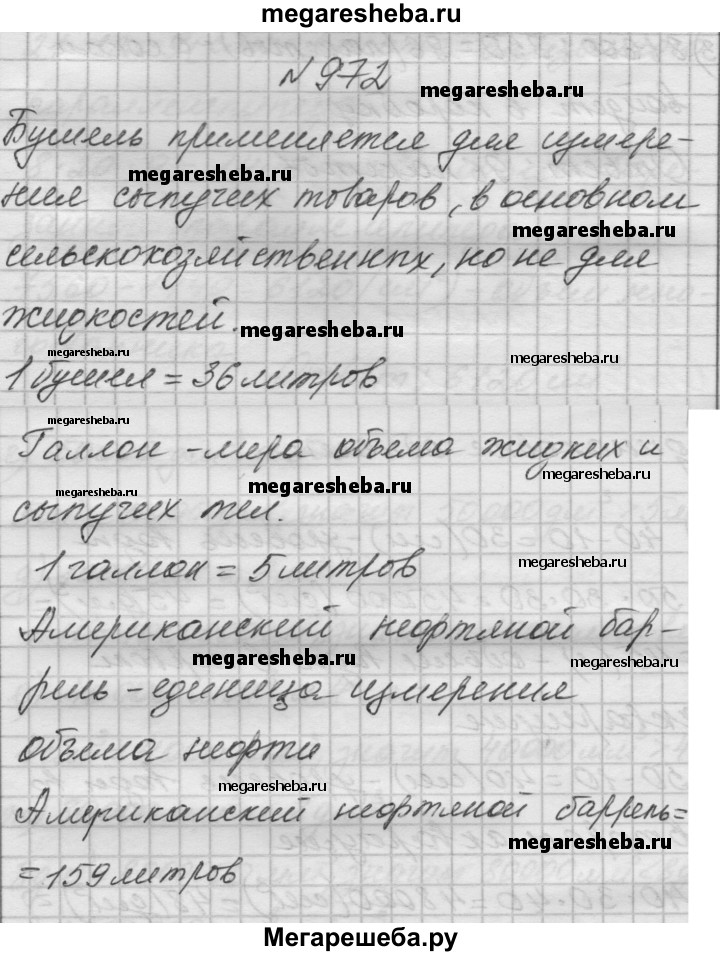 megaresheba.ru
№ 972
megaresheba.ru
Бушель применяется для измере-
megaresheba.ru
ния сыпучих товаров, в основном
megaresheba.ru
сельскохозяйственных, но не для
жидкостей.
megaresheba.ru
megaresheba.ru
megaresheba.ru
1 бушел = 36 литров
Галлон - мера объема жидких и
megaresheba.ru
megaresheba.ru
megaresheba.ru
сыпучих тел.
1 галлон = 5 литров
megaresheba.ru
Американский нефтяной бар-
megaresheba.ru
megaresheba.ru
рель - единица измерения
объема нефти
megaresheba.ru
Американский нефтяной баррель=
megaresheba.ru
= 159 литров
Мегарешеба.ру